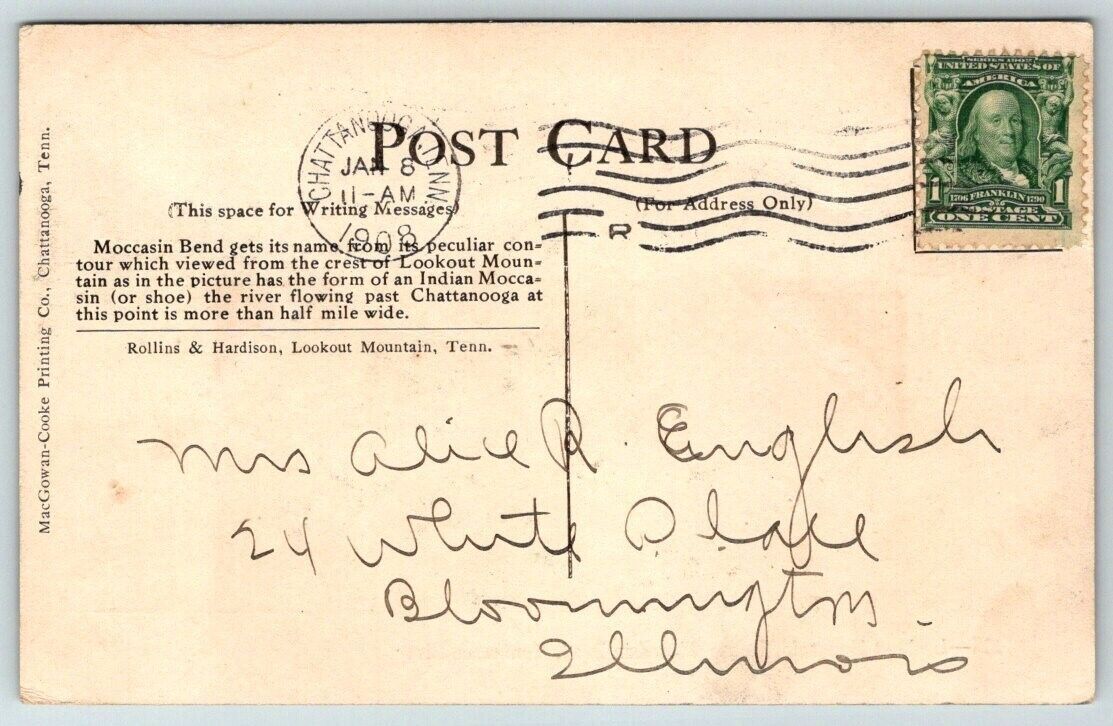 POST CARD
CHATTANOOGA, TENN.
JAN 8
11-AM
1908
R
SERIES 1902
UNITED STATES OF
AMERICA
1 1
1706 FRANKLIN 1790
POSTAGE
ONE CENT
(This space for Writing Messages)
(For Address Only)
Moccasin Bend gets its name from its peculiar con=
tour which viewed from the crest of Lookout Moun=
tain as in the picture has the form of an Indian Mocca=
sin (or shoe) the river flowing past Chattanooga at
this point is more than half mile wide.
Rollins & Hardison, Lookout Mountain, Tenn.
MacGowan-Cooke Printing Co., Chattanooga, Tenn.
Mrs Alice R. English
24 White Place
Bloomington
Illinois